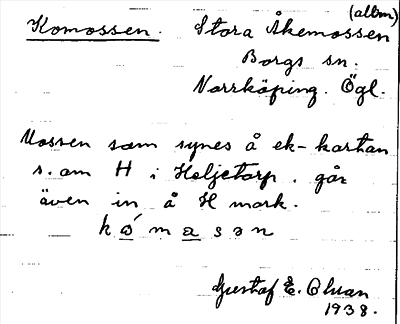 Komossen. Stora Åkemossen (allm)
Borgs sn.
Norrköping. Ögl.
Mossen som synes å ek-kartan
s. om H i Holjetorp. går
även in å H mark.
kómasən
Gustaf E.
1938.